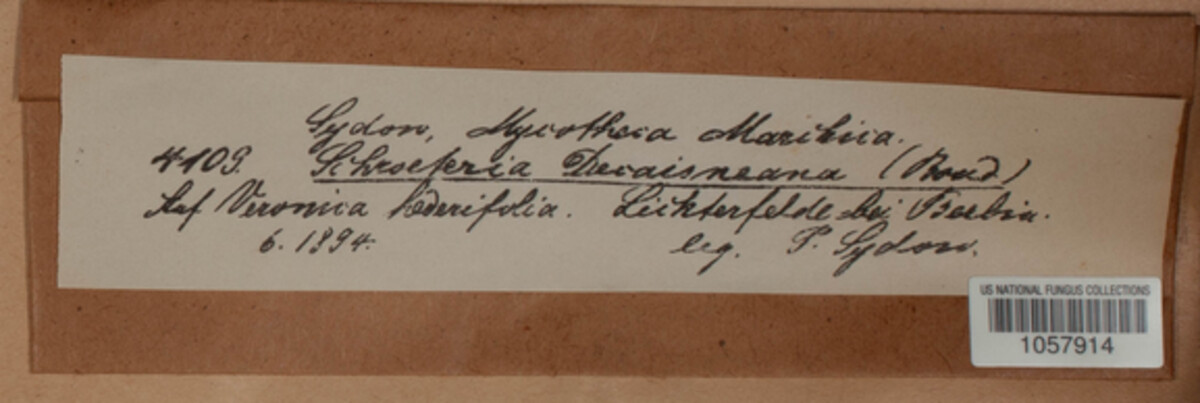 Sydow, Mycotheca Marchica.
4109. Schroeteria Decaisneana (Boud.)
Auf Veronica hederifolia. Lichterfelde bei Berlin.
6. 1894. leg. P. Sydow.
US NATIONAL FUNGUS COLLECTIONS
1057914